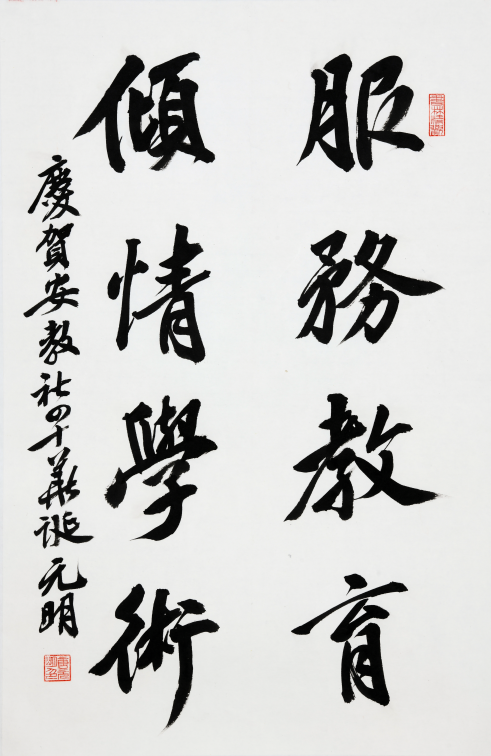 服務教育
傾情學術
慶賀安教社四十華誕 元明